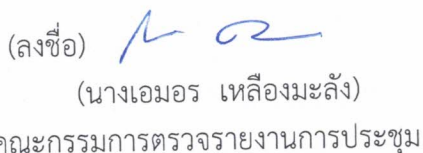 (ลงชื่อ)
(นางเอมอร เหลืองมะลัง)
คณะกรรมการตรวจรายงานการประชุม